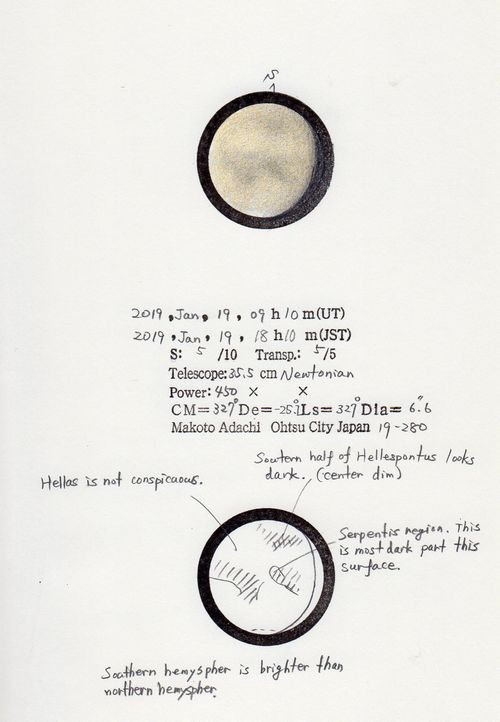 S
2019, Jan, 19, 09 h 10 m (UT)
2019, Jan, 19, 18 h 10 m (JST)
S: 5 /10 Transp.: 5/5
Telescope: 35.5 cm Newtonian
Power: 450 × ×
CM= 327° De= -25.1° Ls= 327° Dia= 6.6"
Makoto Adachi Ohtsu City Japan 19-280
Soutern half of Hellespontus looks
dark. (center dim)
Hellas is not conspicuous.
Serpentis region. This
is most dark part this
surface.
Southern hemyspher is brighter than
northern hemyspher.